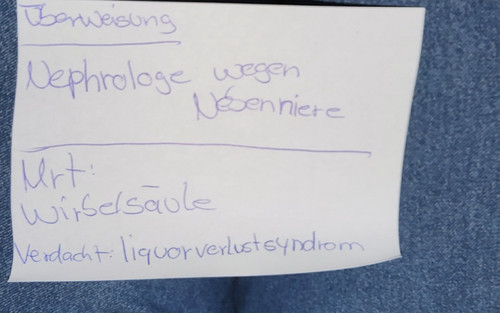 Überweisung
Nephrologe wegen
Nebenniere
Mrt:
Wirbelsäule
Verdacht: liquorverlustsyndrom